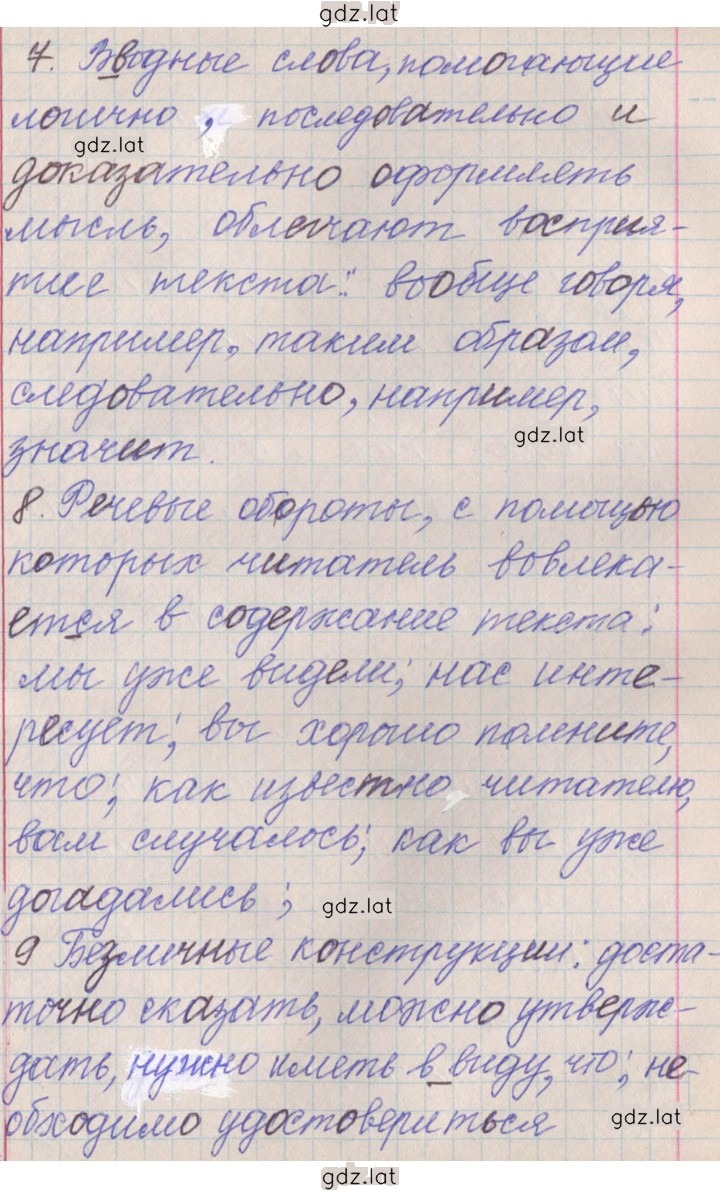 gdz.lat
7. Вводные слова, помогающие
логично, последовательно и
gdz.lat
доказательно оформлять
мысль, облегчают восприя-
тие текста: вообще говоря,
например, таким образом,
следовательно, например,
gdz.lat
значит.
8. Речевые обороты, с помощью
которых читатель вовлека-
ется в содержание текста:
мы уже видели; нас инте-
ресует; вы хорошо помните,
что; как известно читателю,
вам случалось; как вы уже
догадались;
gdz.lat
9 Безличные конструкции: доста-
точно сказать, можно утверж-
дать, нужно иметь в виду, что; не-
обходимо удостовериться
gdz.lat
gdz.lat